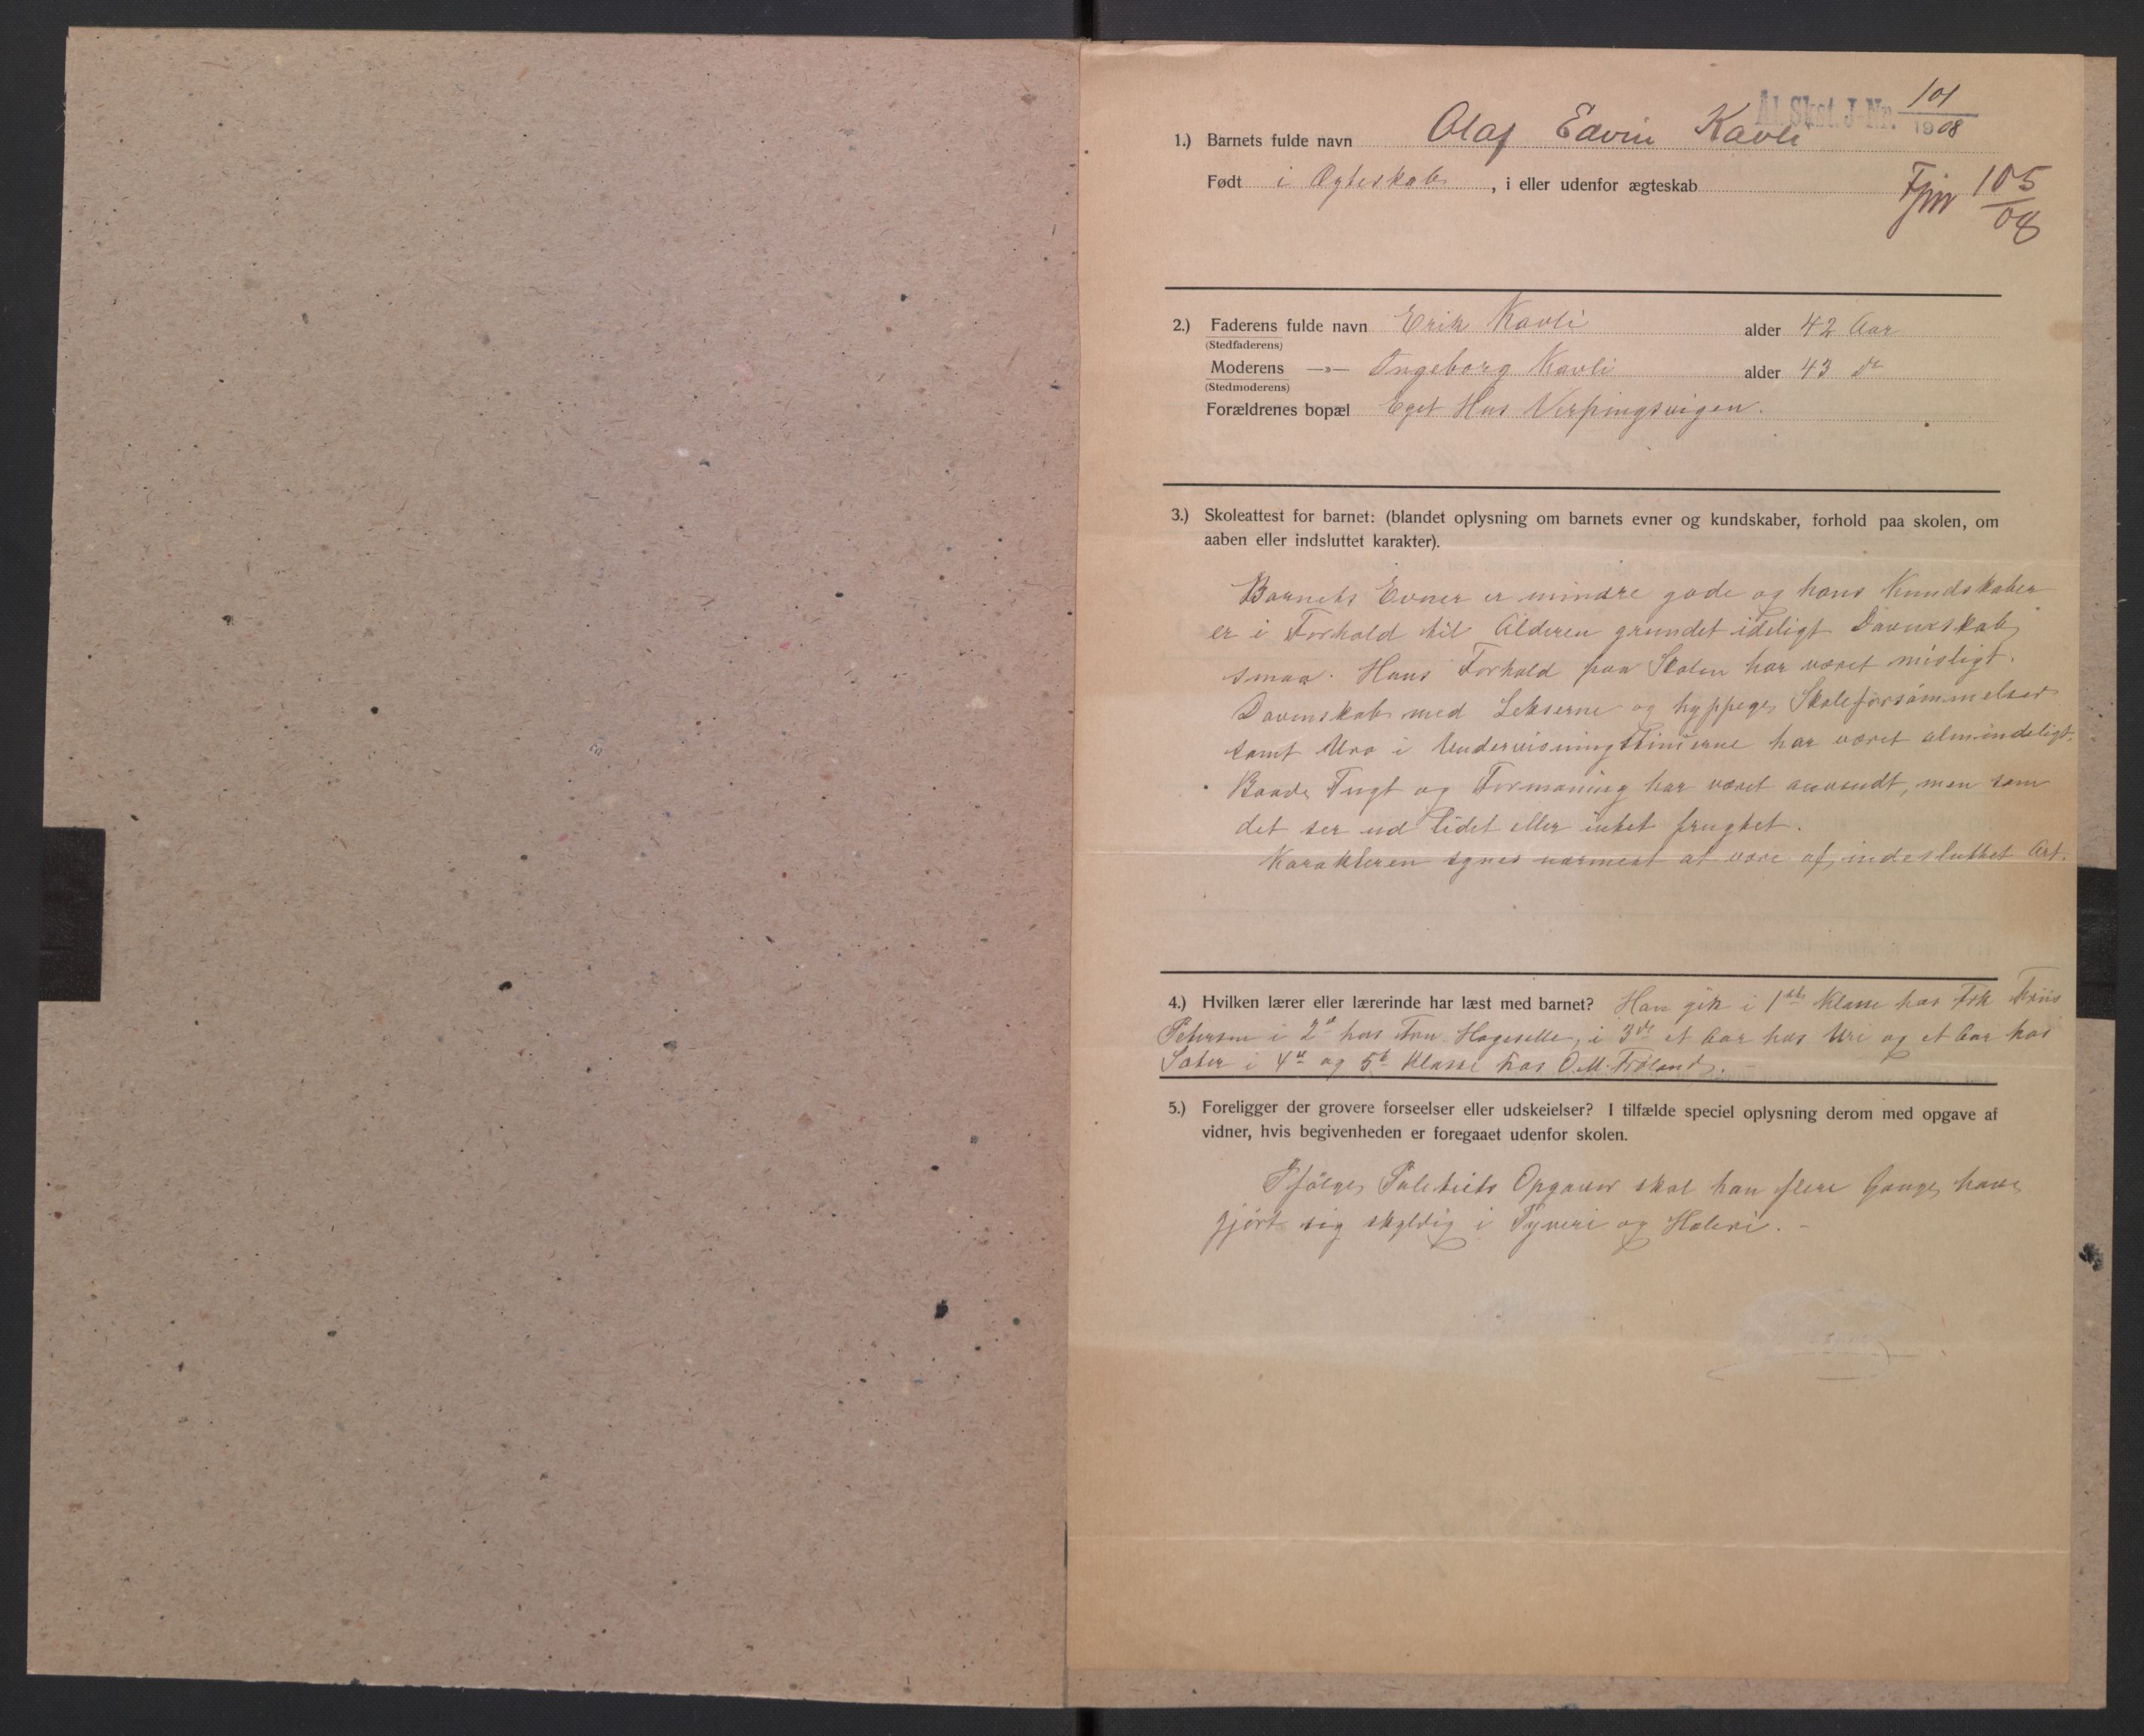 Ål. Skst. J-Nr. 101
1908
1.) Barnets fulde navn Olaf Edvin Kavli
Født i Ægteskab, i eller udenfor ægteskab
Fjnr 105
08
2.) Faderens fulde navn Erik Kavli alder 42 Aar
(Stedfaderens)
Moderens —»— Ingeborg Kavli alder 43 do
(Stedmoderens)
Forældrenes bopæl Eget Hus Nerpingsvigen.
3.) Skoleattest for barnet: (blandet oplysning om barnets evner og kundskaber, forhold paa skolen, om
aaben eller indsluttet karakter).
Barnets Evner er mindre gode og hans Kundskaber
er i Forhold til Alderen grundet ideligt Dovenskab
smaa. Hans Forhold paa Skolen har været misligt.
Dovenskab med Lekserne og hyppige Skoleforsømmelser
samt Uro i Undervisningstimerne har været almindeligt.
Baade Tugt og Formaning har været anvendt, men som
det ser ud lidet eller intet frugtet.
Karakteren synes nærmest at være af indesluttet Art.
4.) Hvilken lærer eller lærerinde har læst med barnet? Han gik i 1ste Klasse hos Frk Friis
Petersen i 2d hos Fru Hagesette, i 3de et Aar hos Ure og et Aar hos
Sæter i 4de og 5te Klasse hos O. M. Frøland. —
5.) Foreligger der grovere forseelser eller udskeielser? I tilfælde speciel oplysning derom med opgave af
vidner, hvis begivenheden er foregaaet udenfor skolen.
Ifølge Politiets Opgaver skal han flere Gange have
gjørt sig skyldig i Tyveri og Hæleri. —